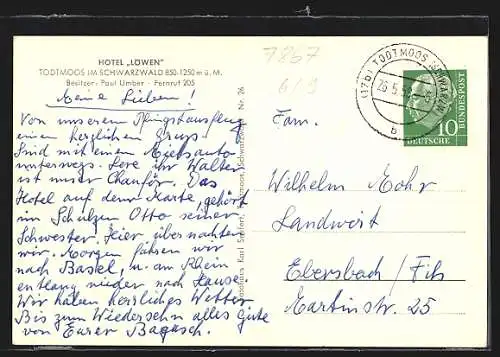 HOTEL „LÖWEN"
TODTMOOS IM SCHWARZWALD 850-1250 m ü. M.
Besitzer: Paul Umber - Fernruf 205
Meine Lieben!
Von unserem Pfingstausflug
einen herzlichen Gruß.
Sind mit einem Mietsauto
unterwegs. Lore ihr Walter
ist unser Chauför. Das
Hotel auf dem Karte, gehört
im Schulzen Otto seiner
Schwester. Hier übernachten
wir. Morgen fahren wir
nach Basel, u. am Rhein
entlang wieder nach Hause.
Wir haben herrliches Wetter
Bis zum Wiedersehn alles Gute
von Eurer Bagasch.
Karl Seifert, Todtmoos, Schwarzwald Nr. 26
7867
6/9
(17b) TODTMOOS (SCHWARZW)
26.5.
b
10
DEUTSCHE BUNDESPOST
Fam.
Wilhelm Mohr
Landwirt
Ebersbach / Fils
Martinstr. 25